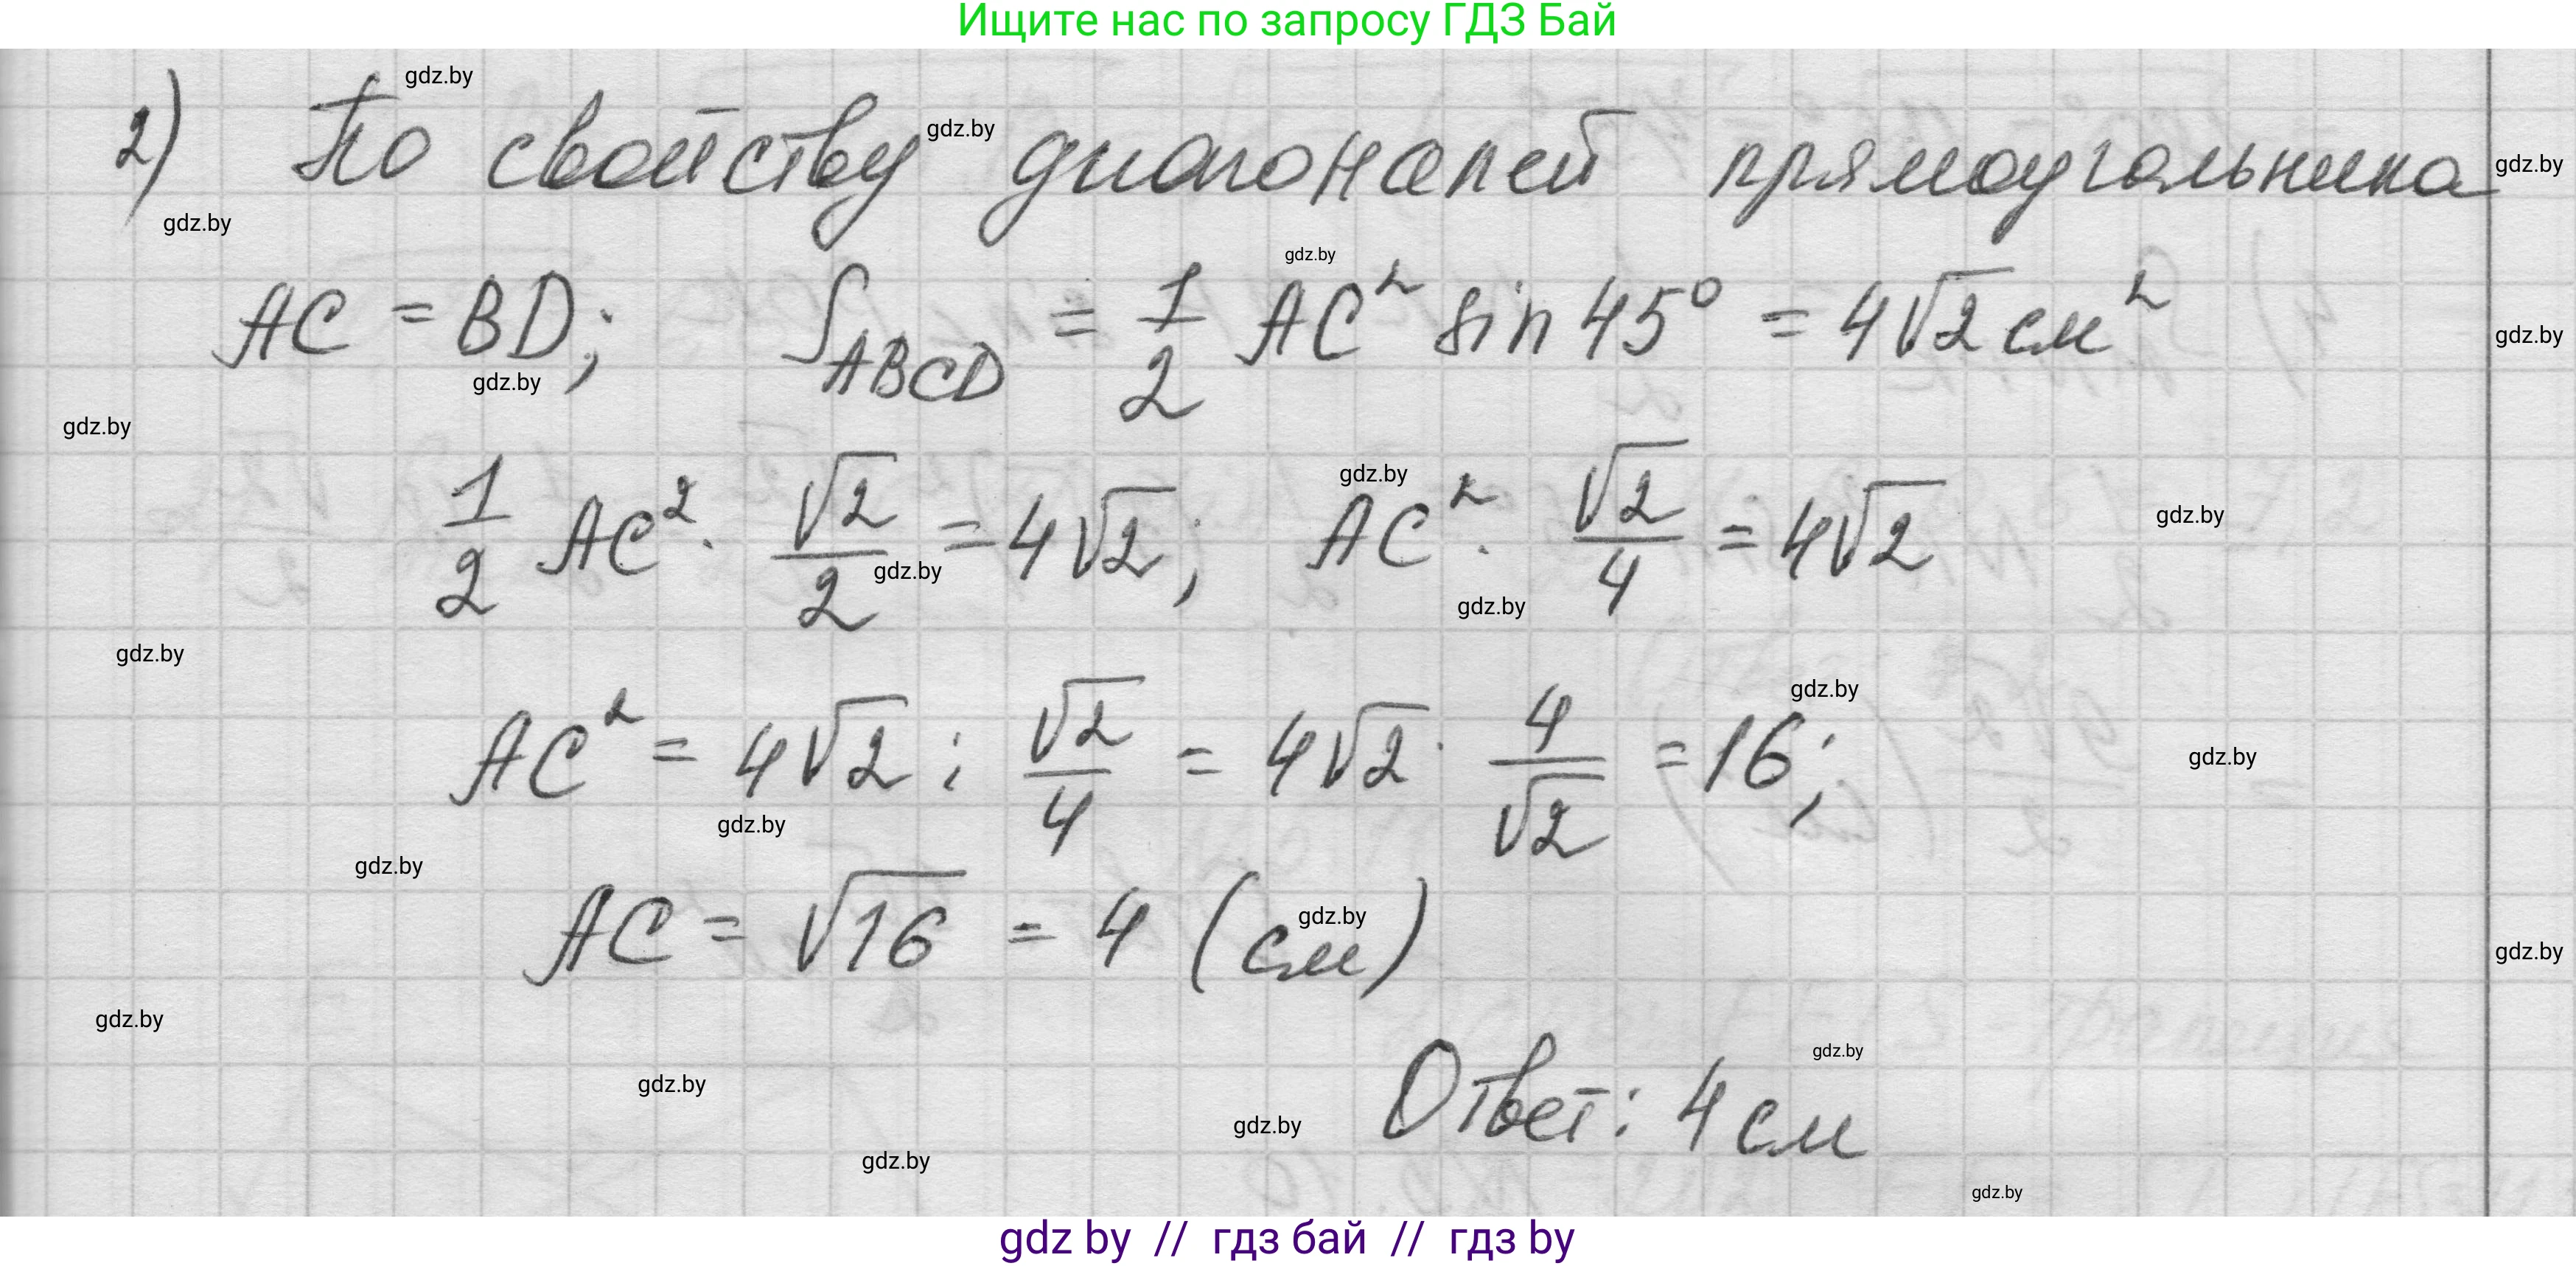 Ищите нас по запросу ГДЗ Бай
gdz.by
2) По свойству диагоналей прямоугольника
gdz.by
gdz.by
gdz.by
gdz.by
AC = BD; S_ABCD = 1/2 AC² sin 45° = 4√2 см²
gdz.by
gdz.by
gdz.by
gdz.by
1/2 AC² · √2/2 = 4√2; AC² · √2/4 = 4√2
gdz.by
gdz.by
gdz.by
gdz.by
gdz.by
AC² = 4√2 : √2/4 = 4√2 · 4/√2 = 16;
gdz.by
gdz.by
gdz.by
gdz.by
AC = √16 = 4 (см)
gdz.by
gdz.by
gdz.by
gdz.by
Ответ: 4 см
gdz.by
gdz.by
gdz.by
gdz.by
gdz by // гдз бай // гдз by